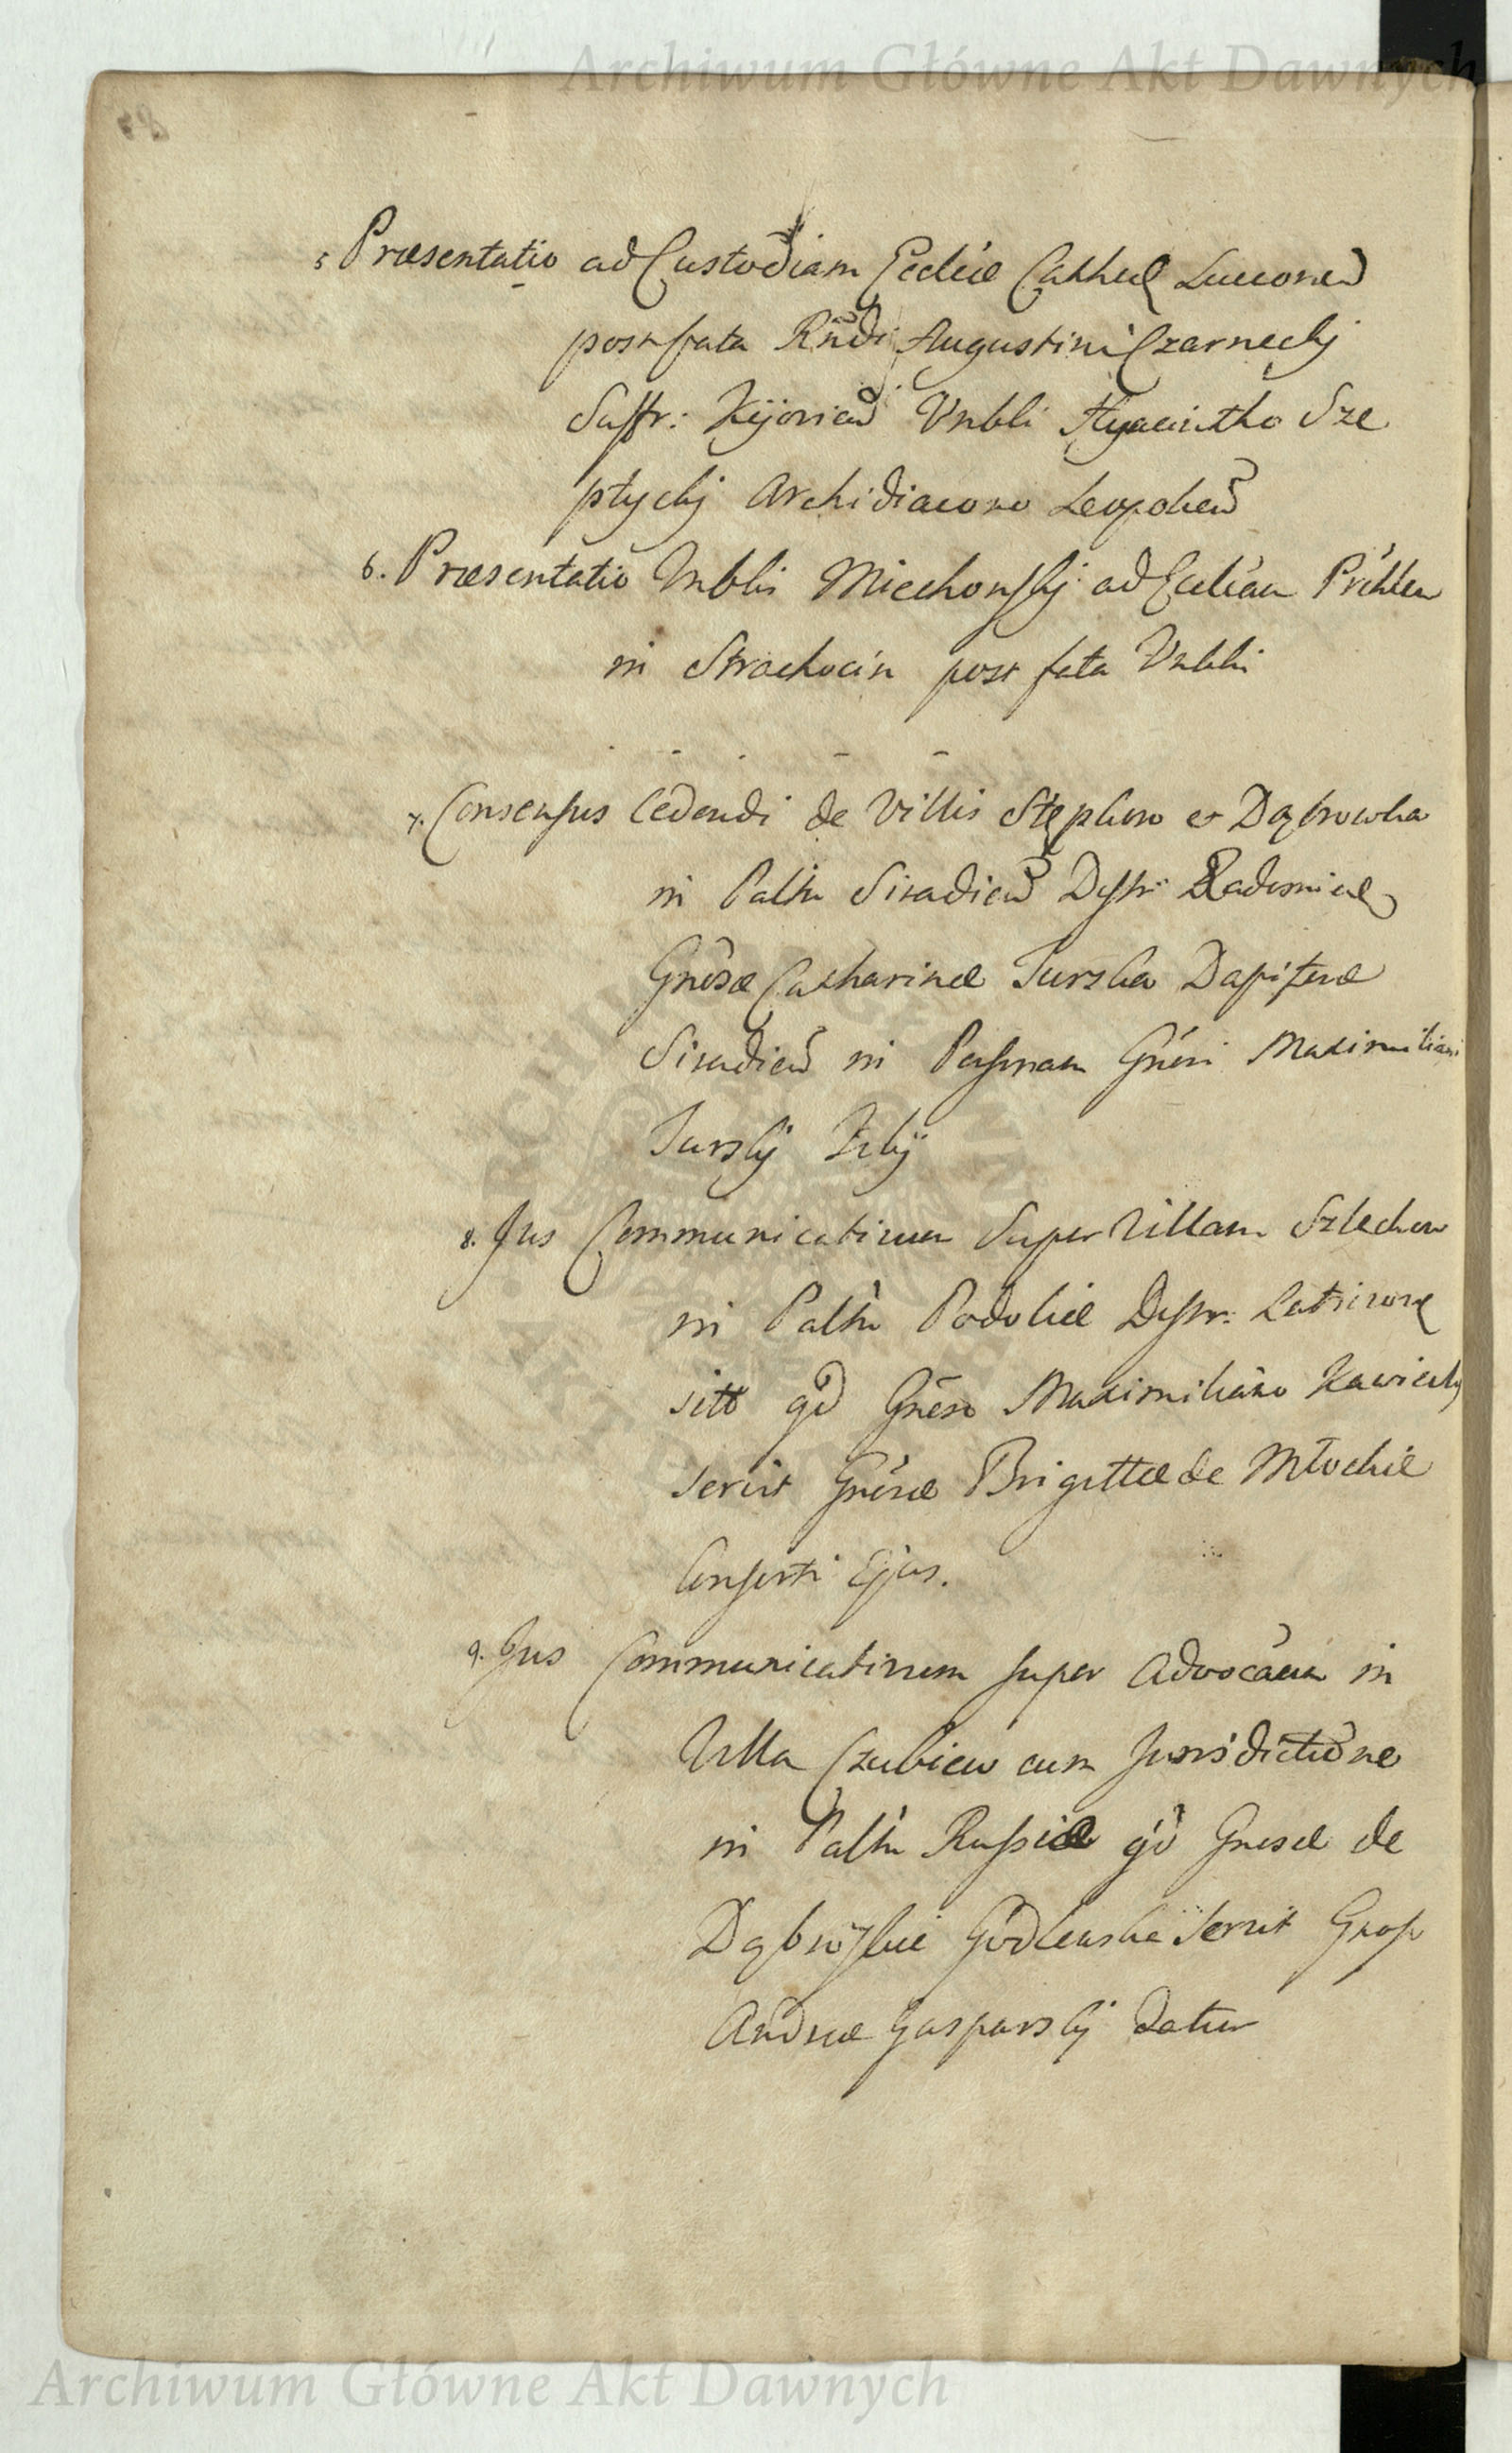 Archiwum Główne Akt Dawnych
5 Præsentatio ad Custodiam Eccliæ Cathed Luceoren
post fata Rndi Augustini Czarnecky
Suffr: Kijovien Vnbli Hyacintho Sze
ptycky Archidiacono Leopolien
6. Præsentatio Vnblis Miechowsky ad Eccliam
in Strachocin post fata Vnbli
7. Consensus Cedendi de Villis et Dąbrowka
in Palttu Siradien Dystr: Radomiæ
Gnosæ Catharinæ Turska Dapiferæ
Siradien in Personam Gnosi Maximiliani
Tursky
8. Jus Communicativum Super Villam
in Palttu Podoliæ Dystr:
sitt qd Gnoso Maximiliano
servit Gnosæ Brigittæ de Młockie
Consorti Ejus.
9. Jus Communicativum super Advocãam in
Villa Czubiew cum Jurisdictione
in Palttu Russiæ qd Gnosæ de
servit Gnoso
Andreæ Gaspársky datur
Archiwum Główne Akt Dawnych